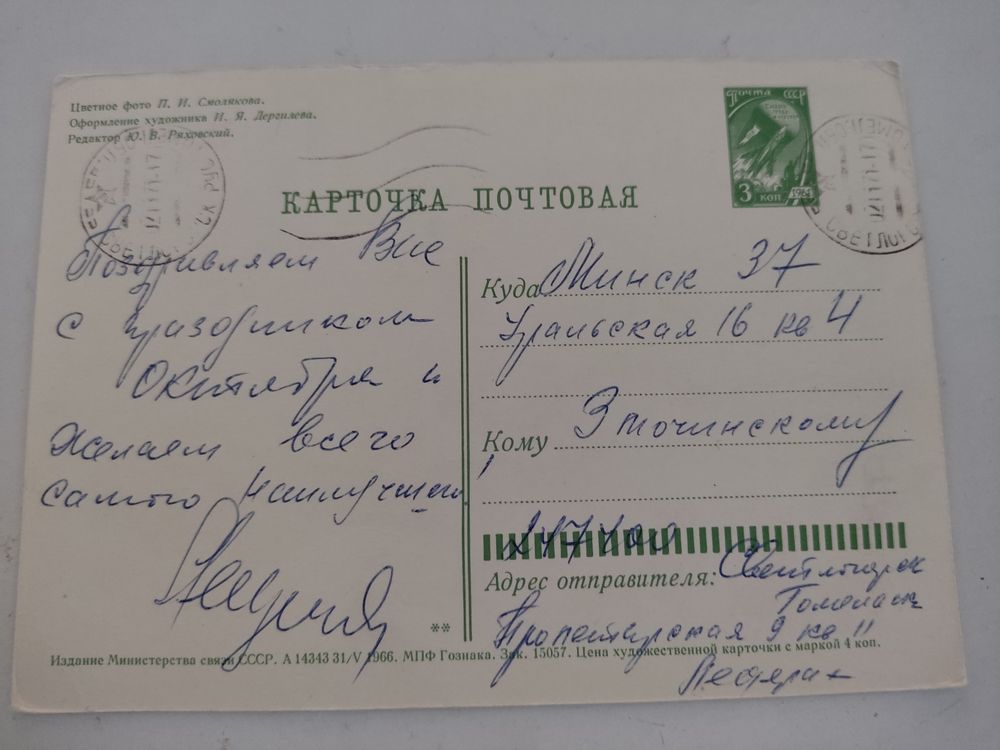 Цветное фото П. И. Смолякова.
Оформление художника И. Я. Дергилева.
Редактор Ю. В. Ряховский.
ПОЧТА СССР
3 КОП
1961
КАРТОЧКА ПОЧТОВАЯ
Поздравляем Вас
с праздником
Октября и
желаем всего
самого наилучшего
Куда Минск 37
Уральская 16 кв 4
Кому Зточинскому
247400
Адрес отправителя: Светлогорск
Гомельск
Пролетарская 9 кв 11
**
Издание Министерства связи СССР. А 14343 31/V 1966. МПФ Гознака. Зак. 15057. Цена художественной карточки с маркой 4 коп.